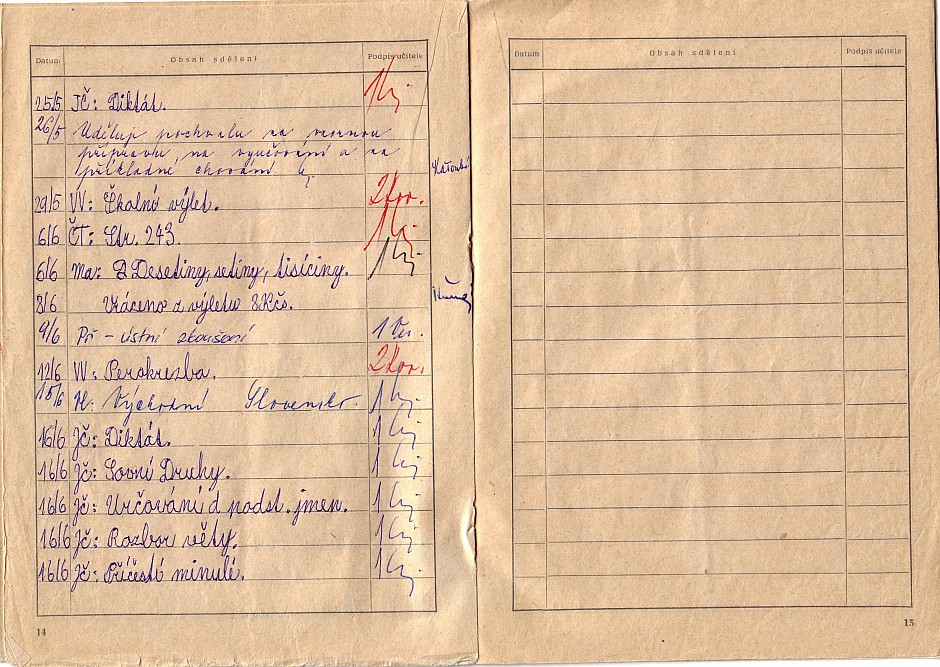 Datum Obsah sdělení Podpis učitele
25/5 JČ: Diktát. 1
26/5 Uděluji pochvalu za vzornou
přípravu na vyučování a za
příkladné chování
29/5 VV: Školní výlet. 2
6/6 ČT: Str. 243. 1
6/6 Ma: Desetiny, setiny, tisíciny. 1
8/6 Vráceno z výletu 8 Kčs.
9/6 Př - ústní zkoušení 1
12/6 VV: Perokresba. 2
15/6 Východní Slovensko. 1
16/6 Jč: Diktát. 1
16/6 Jč: Sovní Druhy. 1
16/6 Jč: Určování d podst. jmen. 1
16/6 Jč: Rozbor věty. 1
16/6 Jč: Příčestí minulé. 1
14
Datum Obsah sdělení Podpis učitele
15